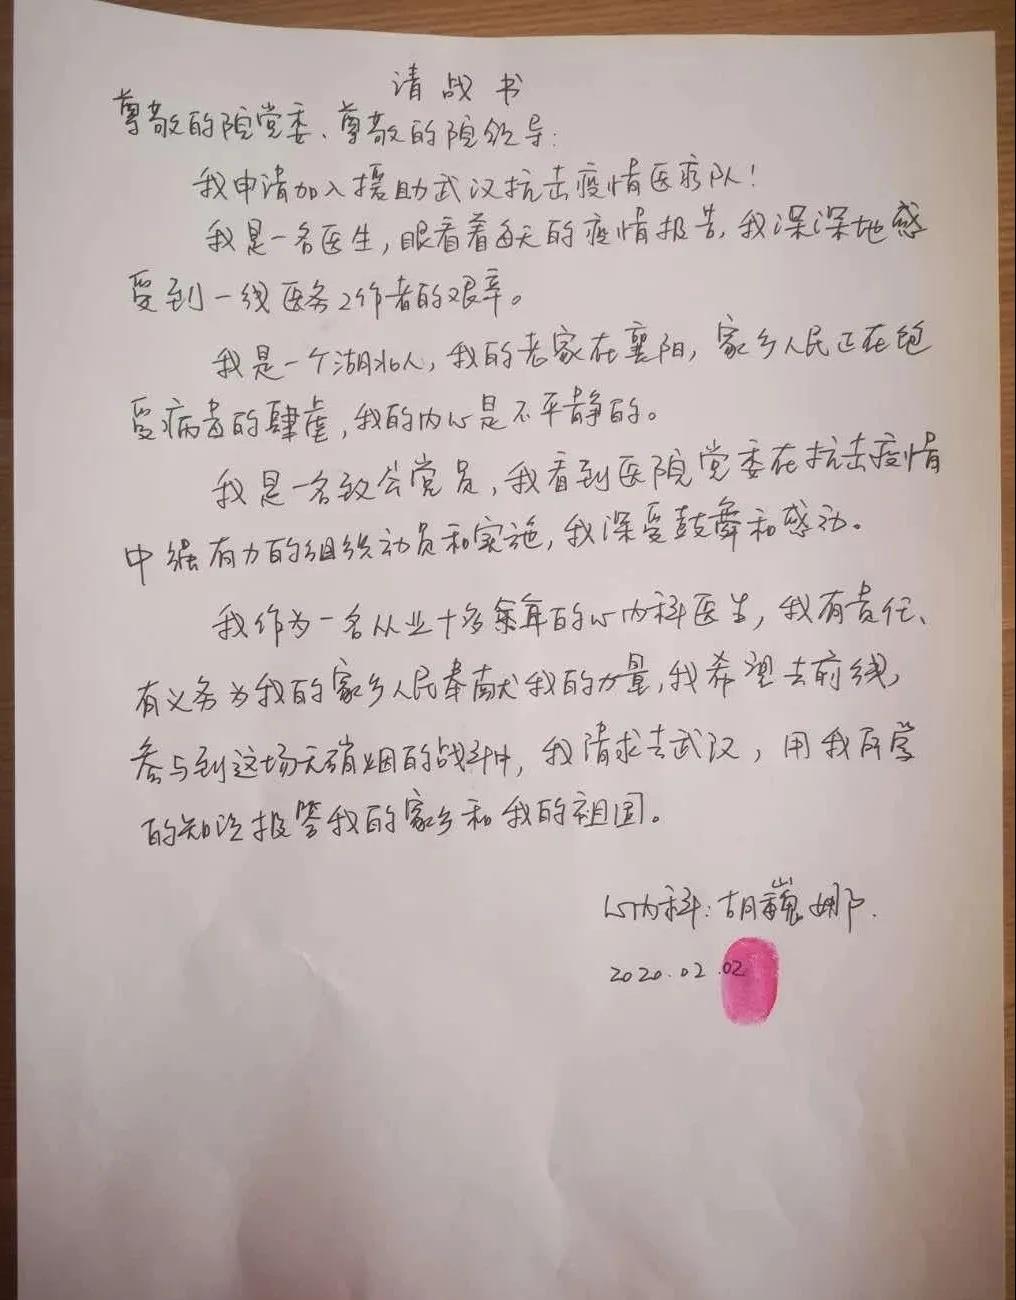 请战书
尊敬的院党委、尊敬的院领导:
我申请加入援助武汉抗击疫情医疗队!
我是一名医生,眼看着每天的疫情报告,我深深地感
受到一线医务工作者的艰辛。
我是一个湖北人,我的老家在襄阳,家乡人民正在饱
受病毒的肆虐,我的内心是不平静的。
我是一名致公党员,我看到医院党委在抗击疫情
中强有力的组织动员和实施,我深受鼓舞和感动。
我作为一名从业十多余年的心内科医生,我有责任、
有义务为我的家乡人民奉献我的力量,我希望去前线,
参与到这场无硝烟的战斗中,我请求去武汉,用我所学
的知识报答我的家乡和我的祖国。
心内科:胡巍娜.
2020.02.02